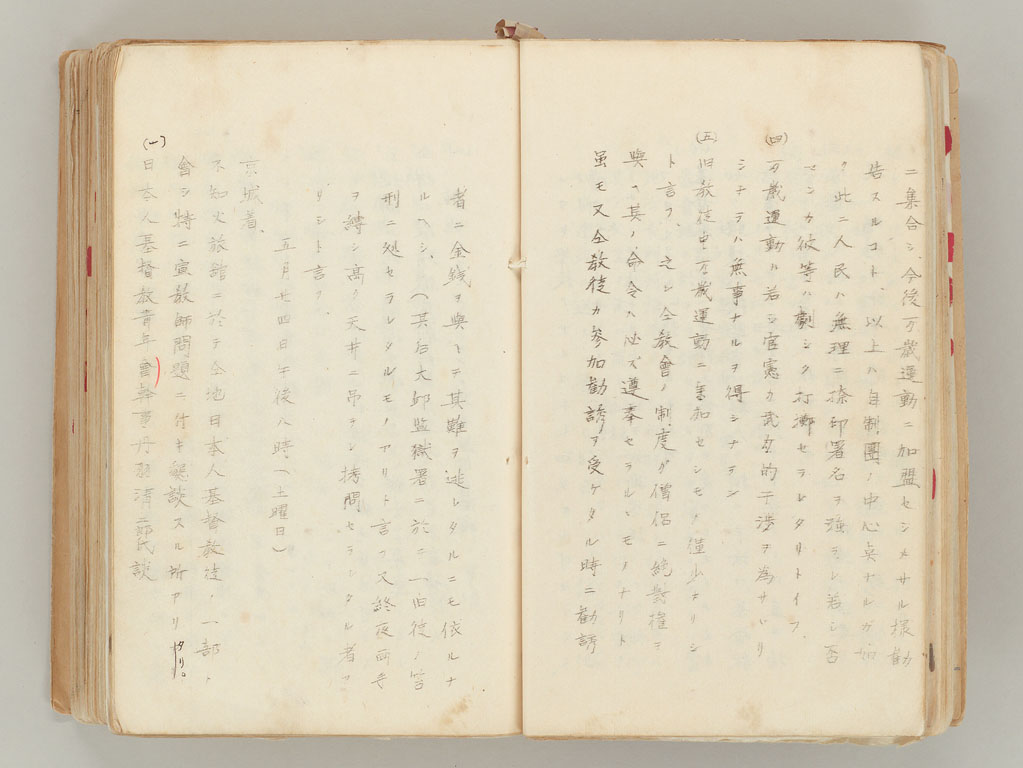 ニ集合シ、今後万歳運動ニ加盟セシメサル様勧
告スルコト、以上ハ自制團ノ中心点ナルガ如
ク此ニ人民ハ無理ニ捺印署名ヲ強ヒレ若シ否
マンカ彼等ハ劇シク打擲セラレタリトイフ、
(四) 万歳運動ハ若シ官憲カ武力的干渉ヲ為サバリ
シナラハ無事ナルヲ得シナラン
(五) 旧教徒中万歳運動ニ参加セシモノ僅少ナリシ
ト言フ、之レ仝教會ノ制度ガ僧侶ニ絶対権ヲ
與ヘ其ノ命令ハ必ズ遵奉セラルヽモノナリト
虽モ又仝教徒カ参加勧誘ヲ受ケタル時ニ勧誘
者ニ金銭ヲ與ヘテ其難ヲ逃レタルニモ依ルナ
ルヘシ、(其后大邱監獄署ニ於テ一旧徒ノ笞
刑ニ処セラレタルモノアリト言フ又終夜両手
ヲ縛シ高ク天井ニ吊ラシ拷問セラレタル者ア
リシト言フ、
五月廿四日午後八時(土曜日)
京城着、
不知火旅館ニ於テ仝地日本人基督教徒ノ一部ト
會シ特ニ宣教師問題ニ付キ懇談スル所アリタリ。
(一) 日本人基督教青年會幹事丹羽清二郎氏談